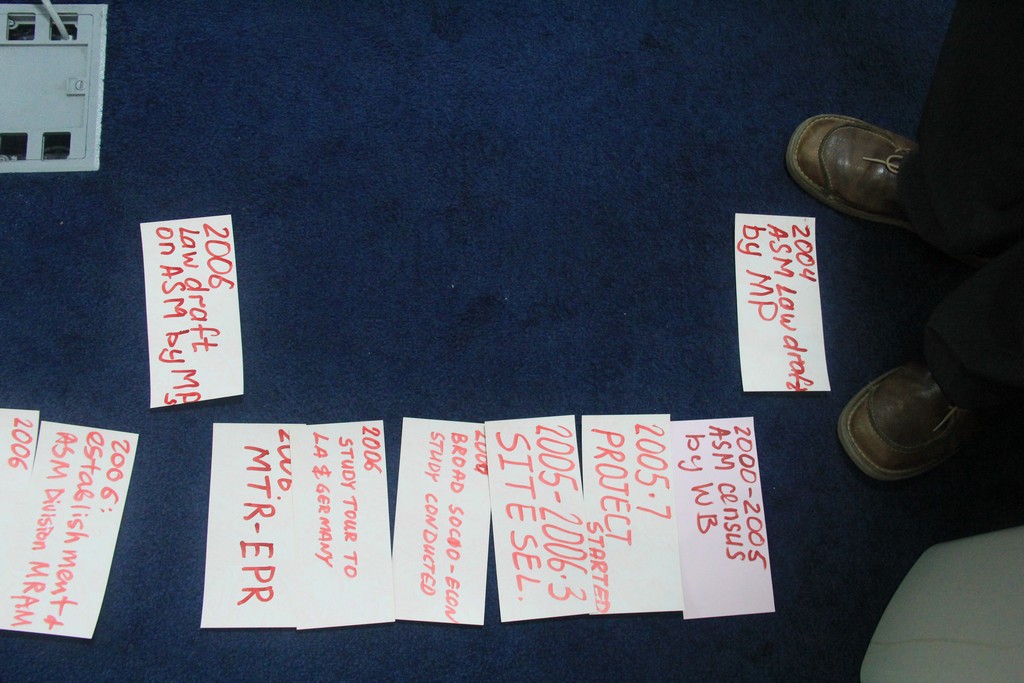 2004
ASM Law draft
by MP
2006
Law draft
on ASM by MPs
2000-2005
ASM census
by WB
2005.7
PROJECT
STARTED
2005-2006.3
SITE SEL.
BROAD SOCIO-ECON
STUDY CONDUCTED
2006
STUDY TOUR TO
LA & GERMANY
MTR-EPR
2006:
establishment
ASM Division MRAM
2006